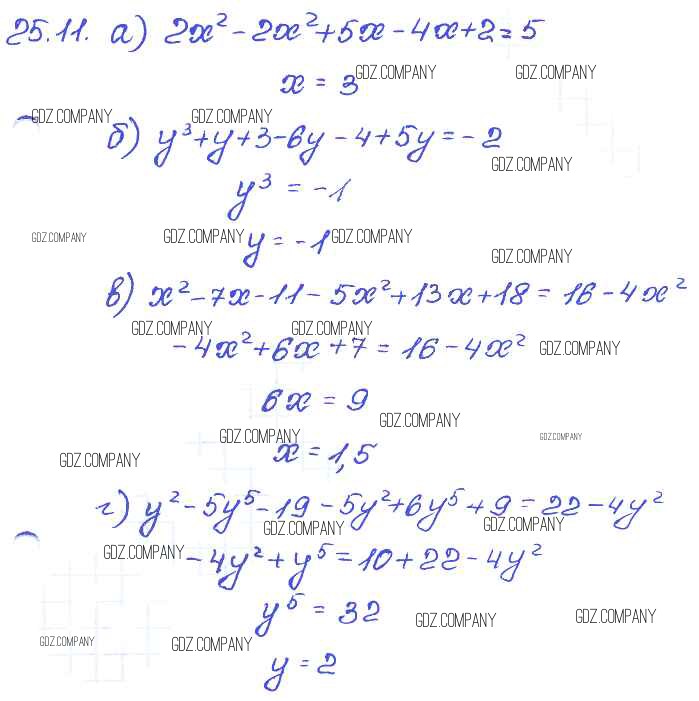 25.11. а) 2x² - 2x² + 5x - 4x + 2 = 5
x = 3 GDZ.COMPANY GDZ.COMPANY
GDZ.COMPANY GDZ.COMPANY
б) y³ + y + 3 - 6y - 4 + 5y = - 2
GDZ.COMPANY
y³ = -1
GDZ.COMPANY GDZ.COMPANY y = -1 GDZ.COMPANY
GDZ.COMPANY
в) x² - 7x - 11 - 5x² + 13x + 18 = 16 - 4x²
GDZ.COMPANY GDZ.COMPANY
- 4x² + 6x + 7 = 16 - 4x² GDZ.COMPANY
6x = 9
GDZ.COMPANY
GDZ.COMPANY GDZ.COMPANY
GDZ.COMPANY x = 1,5
г) y² - 5y⁵ - 19 - 5y² + 6y⁵ + 9 = 22 - 4y²
GDZ.COMPANY GDZ.COMPANY
GDZ.COMPANY - 4y² + y⁵ = 10 + 22 - 4y²
y⁵ = 32 GDZ.COMPANY GDZ.COMPANY
GDZ.COMPANY GDZ.COMPANY
y = 2